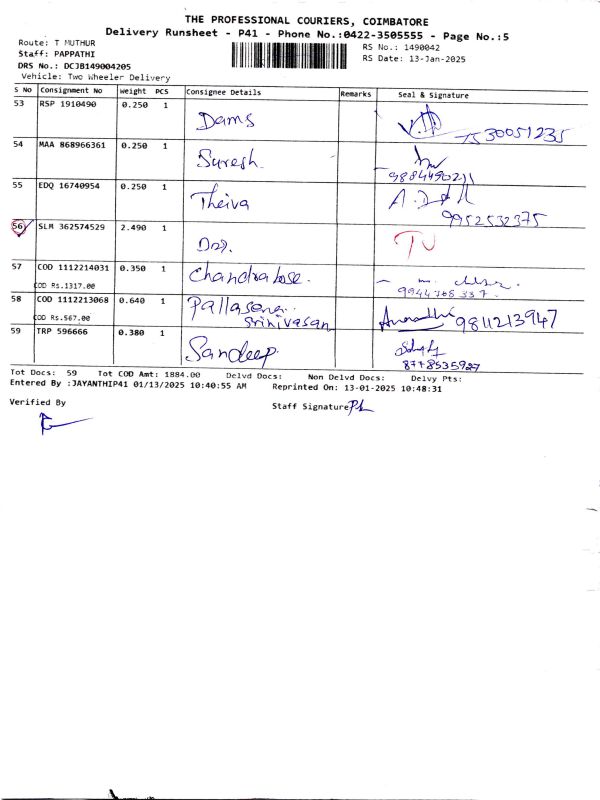 THE PROFESSIONAL COURIERS, COIMBATORE
Delivery Runsheet - P41 - Phone No.:0422-3505555 - Page No.:5
Route: T MUTHUR RS No.: 1490042
Staff: PAPPATHI RS Date: 13-Jan-2025
DRS No.: DCJB149004205
Vehicle: Two Wheeler Delivery
S No Consignment No Weight PCS Consignee Details Remarks Seal & Signature
53 RSP 1910490 0.250 1 Dams 7530051235
54 MAA 868966361 0.250 1 Suresh. 9884490211
55 EDQ 16740954 0.250 1 Theiva 9952532375
56 SLM 362574529 2.490 1
57 COD 1112214031 0.350 1 Chandrabose.
COD Rs.1317.00 9944768337.
58 COD 1112213068 0.640 1 Pallasena. Anuradha 9811213947
COD Rs.567.00 Srinivasan
59 TRP 596666 0.380 1 Sandeep
8778535927
Tot Docs: 59 Tot COD Amt: 1884.00 Delvd Docs: Non Delvd Docs: Delvy Pts:
Entered By :JAYANTHIP41 01/13/2025 10:40:55 AM Reprinted On: 13-01-2025 10:48:31
Verified By Staff Signature